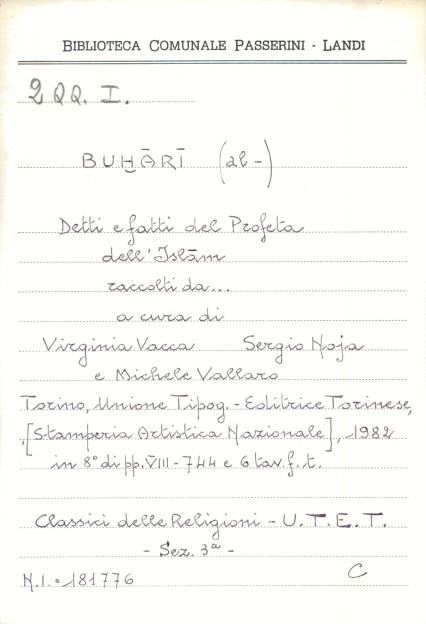 BIBLIOTECA COMUNALE PASSERINI - LANDI
2 QQ. I.
BUḪĀRĪ (al-)
Detti e fatti del Profeta
dell'Islām
raccolti da...
a cura di
Virginia Vacca Sergio Noja
e Michele Vallaro
Torino, Unione Tipog. - Editrice Torinese,
[Stamperia Artistica Nazionale], 1982
in 8° di pp. VIII - 744 e 6 tav. f. t.
Classici delle Religioni - U.T.E.T.
- Sez. 3ª -
N.I. = 181776 C